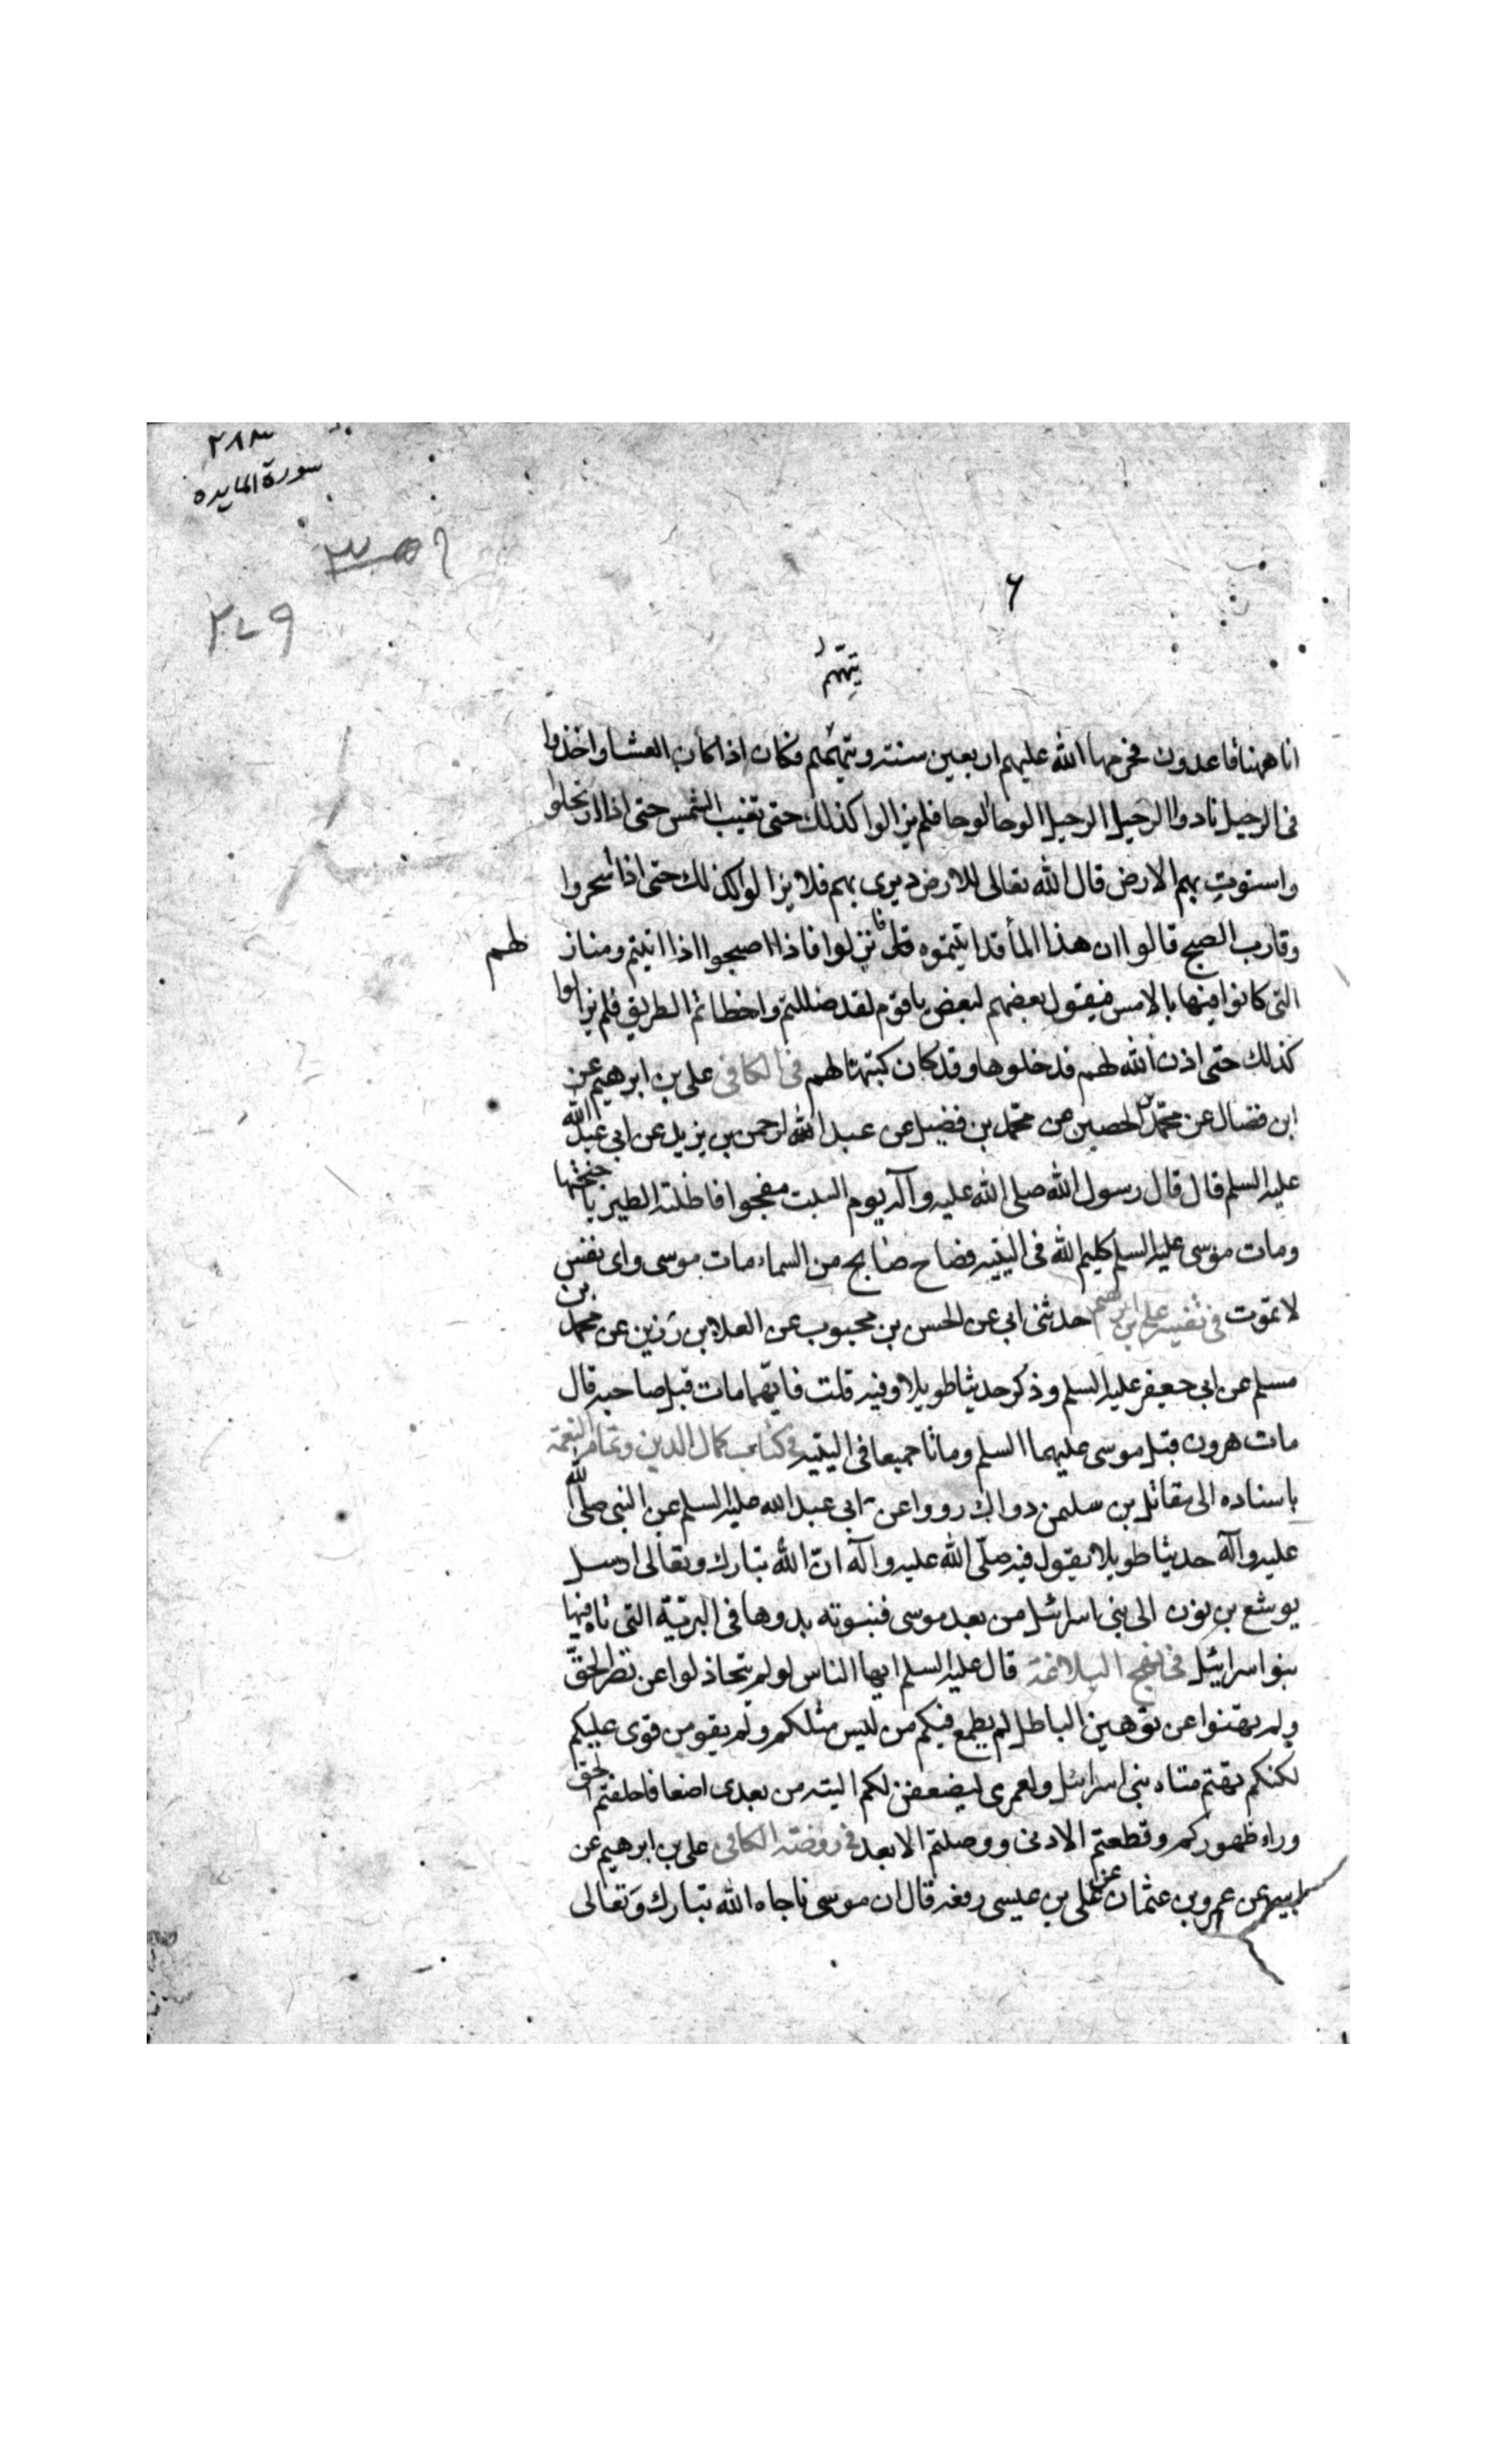 ٢٨٣
سورة المايده
٢٧٩
٦
يتيههم
انا ههنا قاعدون فحرمها الله عليهم اربعين سنة و تيههم فكان اذا كان العشا و اخذوا
فى الرحيل نادوا الرحيل الرحيل الوحا الوحا فلم يزالوا كذلك حتى تغيب الشمس حتى اذا ارتحلوا
و استوت بهم الارض قال الله تعالى للارض ديرى بهم فلا يزالوا كذلك حتى اذا اسحروا
و قارب الصبح قالوا ان هذا الماء قد اتيتموه فانزلوا فاذا اصبحوا اذا تيههم و منازلهم
التى كانوا فيها بالامس فيقول بعضهم لبعض يا قوم لقد ضللتم و اخطاتم الطريق فلم يزالوا
كذلك حتى اذن الله لهم فدخلوها و قد كان كتبها لهم فى الكافى على بن ابرهيم عن
ابن فضال عن محمد بن الحصين عن محمد بن فضيل عن عبد الرحمن بن يزيد عن ابى عبد الله
عليه السلم قال قال رسول الله صلى الله عليه و آله يوم السبت مفجوا فاظلته الطير باجنحتها
و مات موسى عليه السلم كليم الله فى التيه فصاح صايح من السماء مات موسى و اى نفس
لا تموت فى تفسير على بن ابرهيم حدثنى ابى عن الحسن بن محبوب عن العلا بن رزين عن محمد بن
مسلم عن ابى جعفر عليه السلم و ذكر حديثا طويلا و فيه قلت فايهما مات قبل صاحبه قال
مات هرون قبل موسى عليهما السلم و ماتا جميعا فى التيه فى كتاب كمال الدين و تمام النعمة
باسناده الى مقاتل بن سليمن دوال رووا عن ابى عبد الله عليه السلم عن النبى صلى الله
عليه و آله حديثا طويلا يقول فيه صلّى الله عليه و آله انّ الله تبارك و تعالى ارسل
يوشع بن نون الى بنى اسرائيل من بعد موسى فنبوته بدوها فى البرّيّة التى تاه فيها
بنو اسرائيل فى نهج البلاغة قال عليه السلم ايها الناس لو لم تتخاذلوا عن نصر الحقّ
و لم تهنوا عن توهين الباطل لم يطمع فيكم من ليس مثلكم و لم يقو من قوى عليكم
لكنكم تهتم متاه بنى اسرائيل و لعمرى ليضعفن لكم التيه من بعدى اضعافا خلفتم الحق
وراء ظهوركم و قطعتم الادنى و وصلتم الابعد فى روضة الكافى على بن ابرهيم عن
ابيه عن عمرو بن عثمان عن على بن عيسى رفعه قال ان موسى ناجاه الله تبارك و تعالى